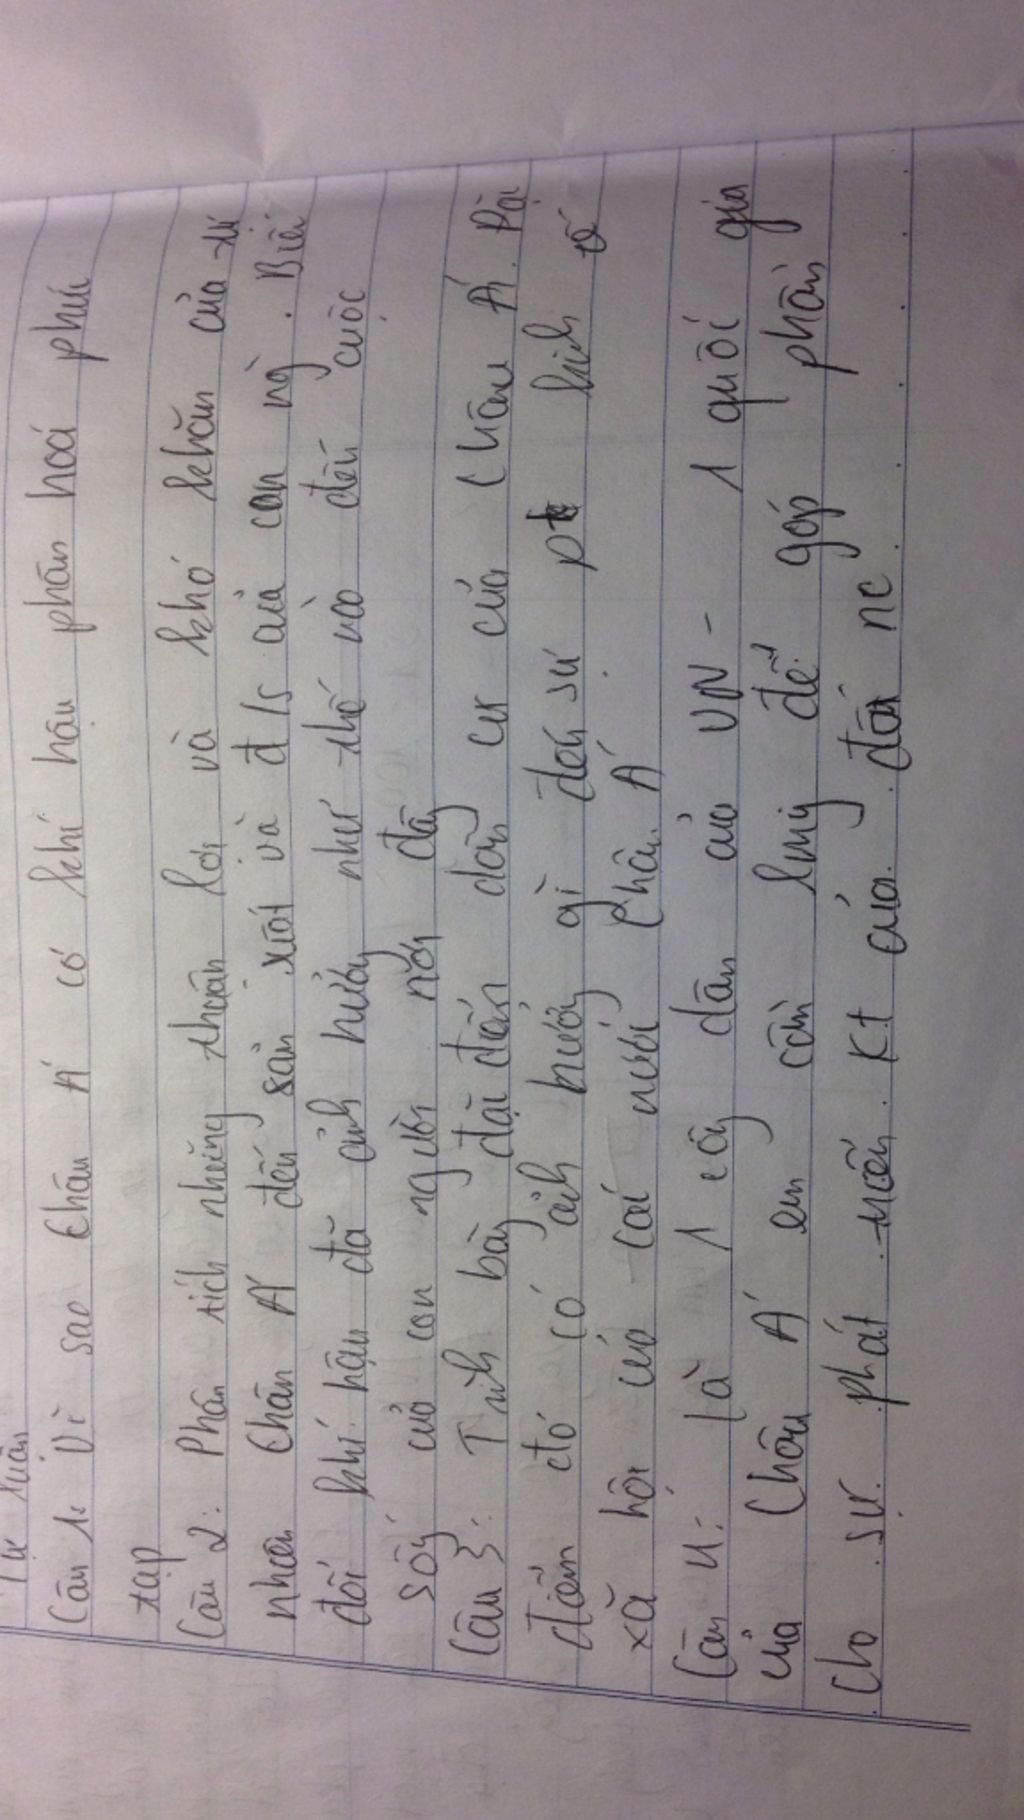 Tự luận
Câu 1: Vì sao Châu Á có khí hậu phân hoá phức
tạp
Câu 2: Phân tích những thuận lợi và khó khăn của tự
nhiên Châu Á đến sản xuất và đ/s của con ng. Biến
đổi khí hậu đã ảnh hưởng như thế nào đến cuộc
sống của con người nơi đây
Câu 3: Trình bày đặc điểm dân cư của Châu Á. Đặc
điểm đó có ảnh hưởng gì đến sự pt kinh tế
xã hội của các nước Châu Á
Câu 4: Là 1 công dân của VN - 1 quốc gia
của Châu Á em cần làm gì để góp phần
cho sự phát triển kt của đất nc